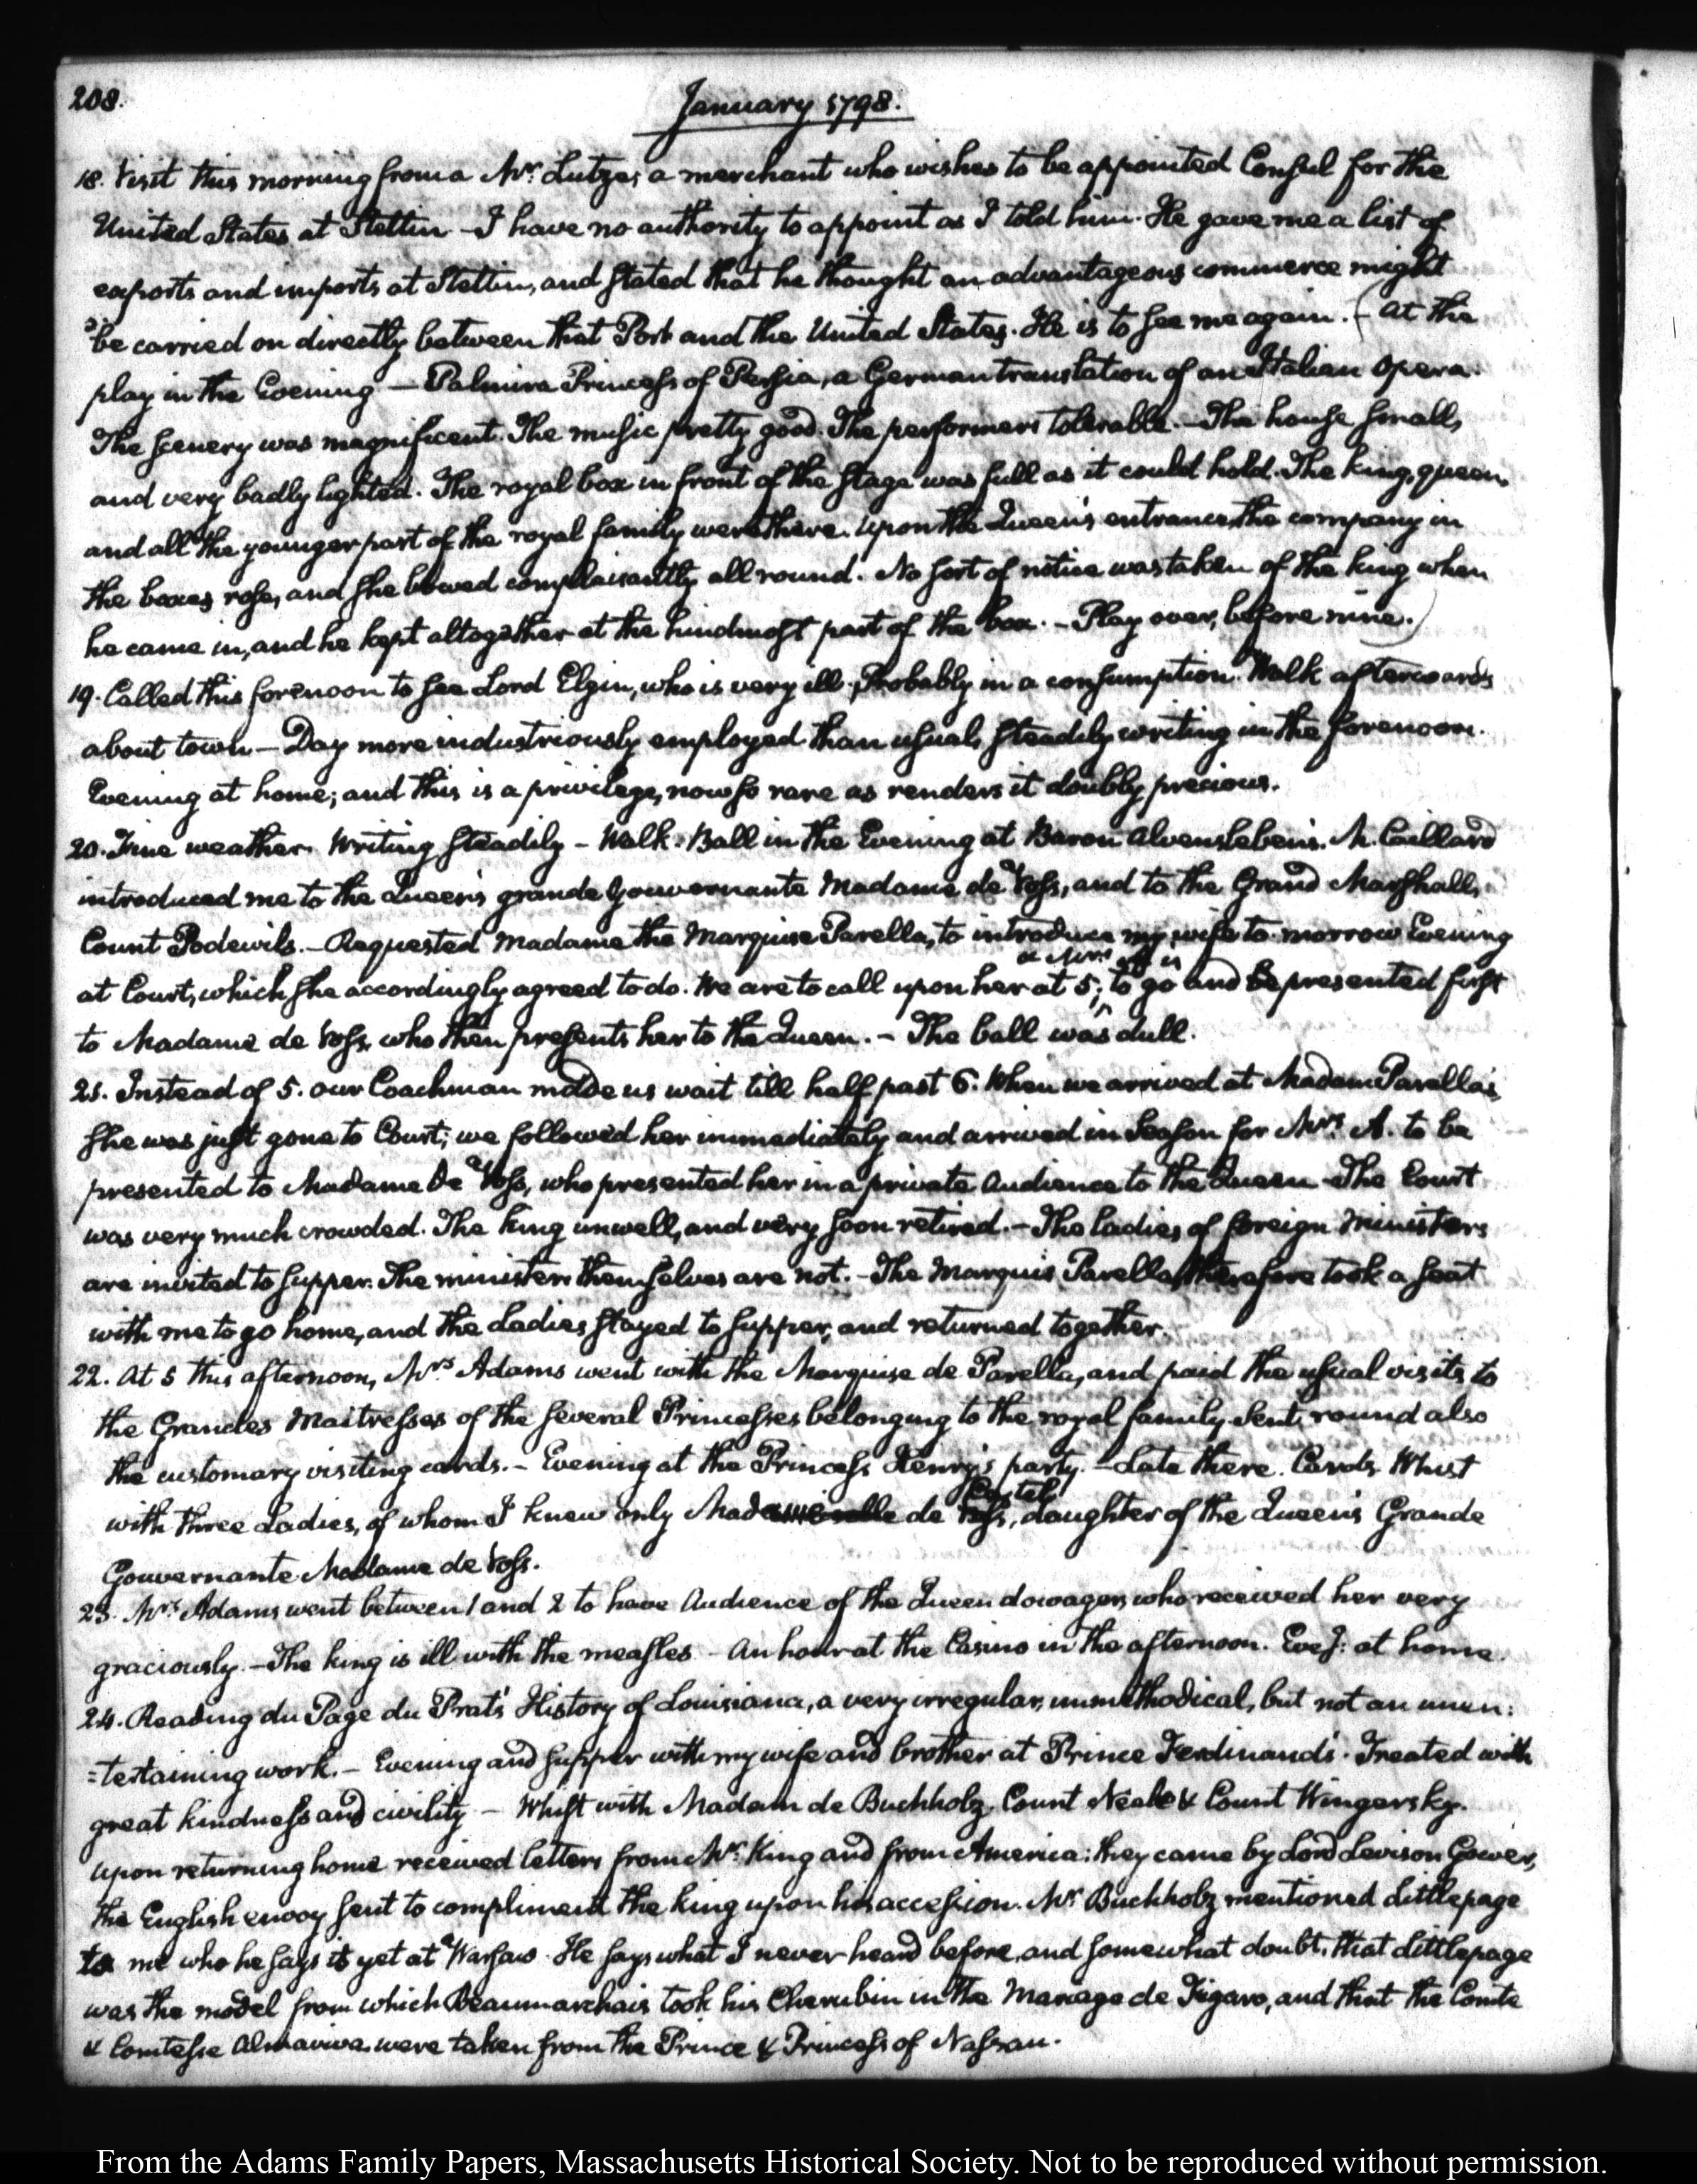 208.
January 1798.
18. Visit this morning from a Mr. Lutze, a merchant who wishes to be appointed Consul for the
United States at Stettin – I have no authority to appoint as I told him. He gave me a list of
exports and imports at Stettin, and stated that he thought an advantageous commerce might
be carried on directly between that Port and the United States. He is to see me again. – (At the
play in the Evening – Palmira Princess of Persia, a German translation of an Italian Opera.
The scenery was magnificent. The music pretty good. The performers tolerable. – The house small,
and very badly lighted. The royal box in front of the stage was full as it could hold. The king, queen,
and all the younger part of the royal family were there. Upon the Queen's entrance, the company in
the boxes rose, and she bowed complaisantly all round. No sort of notice was taken of the king when
he came in, and he kept altogether at the hindmost part of the box. – Play over, before nine.)
19. Called this forenoon to see Lord Elgin, who is very ill. Probably in a consumption. Walk afterwards
about town – Day more industriously employed than usual, steadily writing in the forenoon.
Evening at home; and this is a privilege, now so rare as renders it doubly precious.
20. Fine weather. Writing steadily – Walk. Ball in the Evening at Baron Alvensleben's. M. Caillard
introduced me to the Queen's grande Gouvernante Madame de Voss, and to the Grand Marshall,
Count Podewils. – Requested Madame the Marquise Parella, to introduce my wife to-morrow Evening
at Court, which she accordingly agreed to do. We are to call upon her at 5; & Mrs. A is to go and be presented first
to Madame de Voss, who then presents her to the Queen. – The ball was dull.
21. Instead of 5. our Coachman made us wait till half past 6. When we arrived at Madam Parella's,
she was just gone to Court; we followed her immediately and arrived in Season for Mrs. A. to be
presented to Madame de Voss, who presented her in a private Audience to the Queen – The Court
was very much crowded. The king unwell, and very soon retired. – The ladies of foreign Ministers
are invited to supper. The ministers themselves are not. – The Marquis Parella therefore took a seat
with me to go home, and the Ladies stayed to supper, and returned together.
22. At 5 this afternoon, Mrs. Adams went with the Marquise de Parella, and paid the usual visits to
the Grandes Maitresses of the several Princesses belonging to the royal family. Sent round also
the customary visiting cards. – Evening at the Princess Henry's party. – Late there. Cards. Whist
with three Ladies, of whom I knew only Mademoiselle de Voss, Castel daughter of the Queen's Grande
Gouvernante Madame de Voss.
23. Mrs. Adams went between 1 and 2 to have Audience of the Queen dowager, who received her very
graciously. – The king is ill with the measles – An hour at the Casino in the afternoon. Eveg: at home.
24. Reading du Page du Prat's History of Louisiana, a very irregular, unmethodical, but not an unen:
=tertaining work. – Evening and supper with my wife and brother at Prince Ferdinand's. Treated with
great kindness and civility – Whist with Madam de Buchholz, Count Neale & Count Wingersky.
Upon returning home received letters from Mr. King and from America: they came by Lord Levison Gower,
the English envoy sent to compliment the king upon his accession. Mr. Buchholz mentioned Littlepage
to me who he says is yet at Warsaw. He says what I never heard before, and somewhat doubt, that Littlepage
was the model from which Beaumarchais took his Cherubin in the Mariage de Figaro, and that the Comte
& Comtesse Almaviva were taken from the Prince & Princess of Nassau.
From the Adams Family Papers, Massachusetts Historical Society. Not to be reproduced without permission.